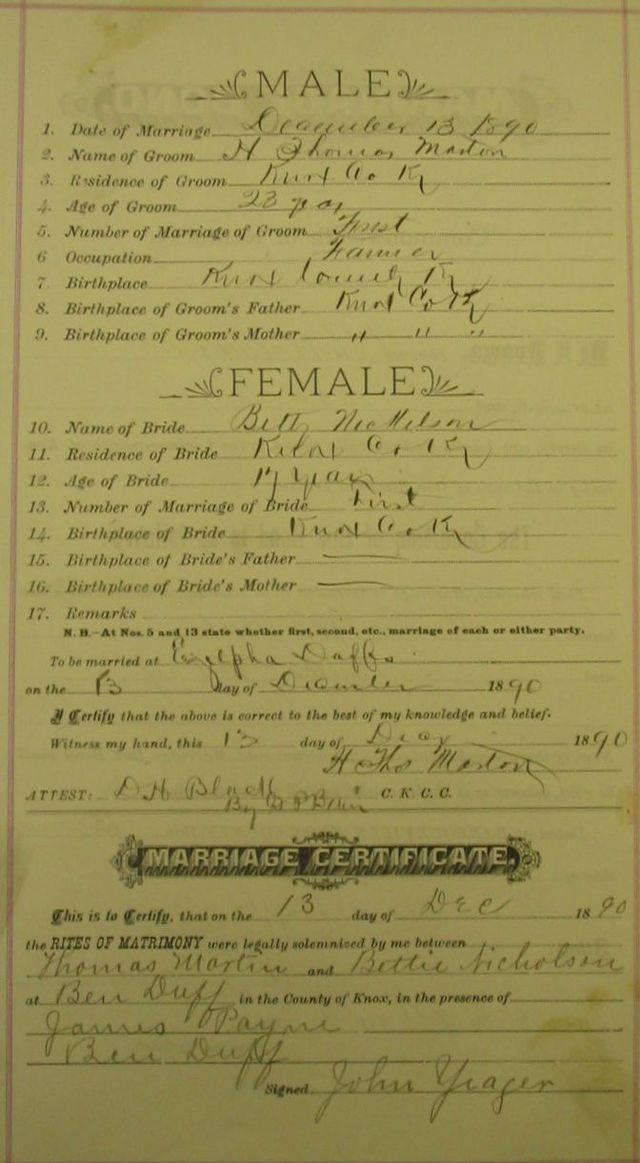 MALE
1. Date of Marriage December 13 1890
2. Name of Groom H Thomas Marton
3. Residence of Groom Knox Co Ky
4. Age of Groom 23 years
5. Number of Marriage of Groom First
6 Occupation Farmer
7 Birthplace Knox County Ky
8. Birthplace of Groom's Father Knox Co Ky
9. Birthplace of Groom's Mother " " "
FEMALE
10. Name of Bride Betty
11. Residence of Bride Knox Co Ky
12. Age of Bride 17 years
13. Number of Marriage of Bride First
14. Birthplace of Bride Knox Co Ky
15. Birthplace of Bride's Father —
16. Birthplace of Bride's Mother —
17. Remarks
N. B.—At Nos. 5 and 13 state whether first, second, etc., marriage of each or either party.
To be married at Duffs
on the 13 day of December 1890
I Certify that the above is correct to the best of my knowledge and belief.
Witness my hand, this 13 day of Dec 1890
H Thos Marton
ATTEST: D H Black C. K. C. C.
By
MARRIAGE CERTIFICATE.
This is to Certify, that on the 13 day of DEC 1890
the RITES OF MATRIMONY were legally solemnized by me between
Thomas Martin and Bettie Nicholson
at Ben Duff in the County of Knox, in the presence of
James Payne
Ben Duff
Signed John Yeager